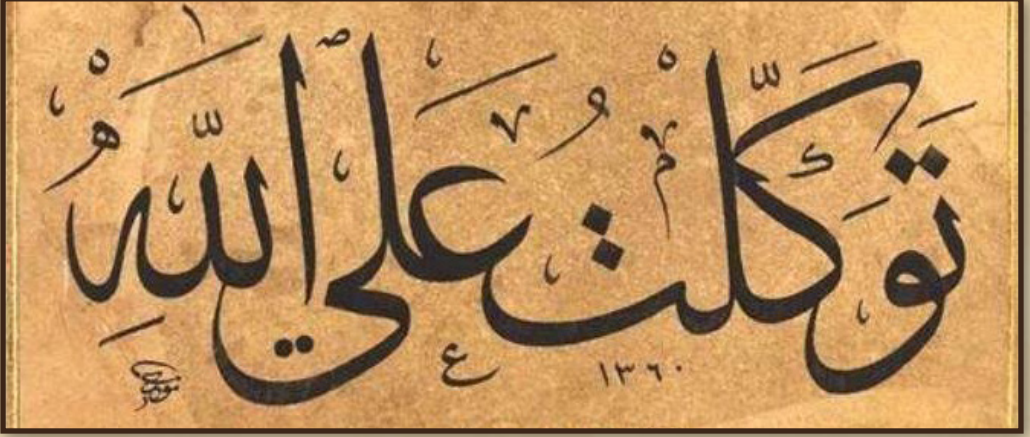 تَوَكَّلْتُ عَلَي اللّٰهِ
١٣٦٠